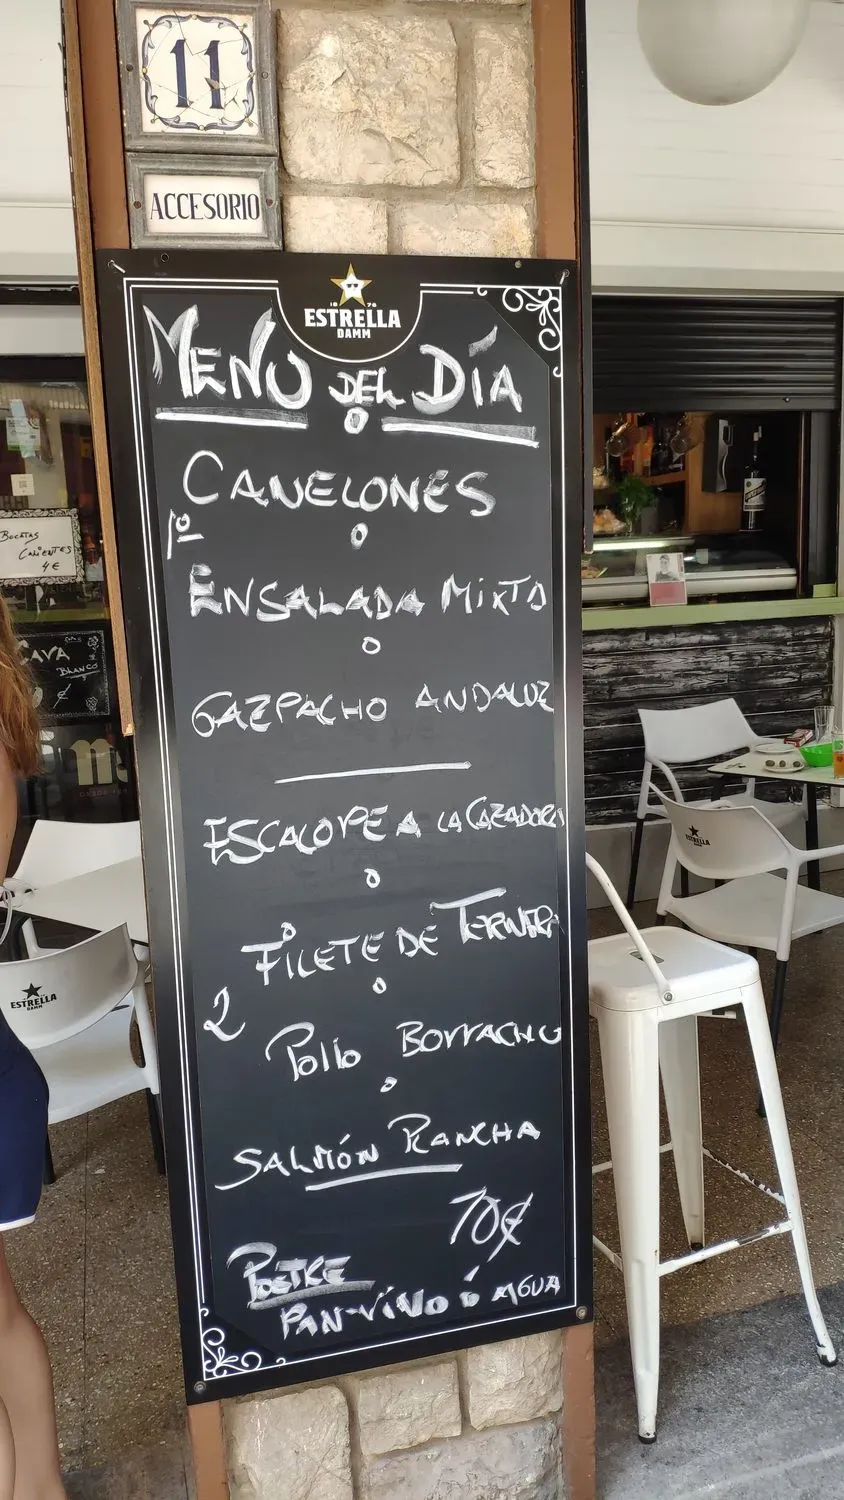 11
ACCESORIO
1876
ESTRELLA
DAMM
MENÚ DEL DÍA
CANELONES
1º
ENSALADA MIXTA
GAZPACHO ANDALUZ
ESCALOPE A LA CAZADORA
FILETE DE TERNERA
2º
Pollo BORRACHO
SALMÓN PLANCHA
10€
POSTRE
PAN-VINO ó AGUA
BOCATAS
CALIENTES
4€
CAVA
BLANCO
€
ESTRELLA
DAMM
ESTRELLA